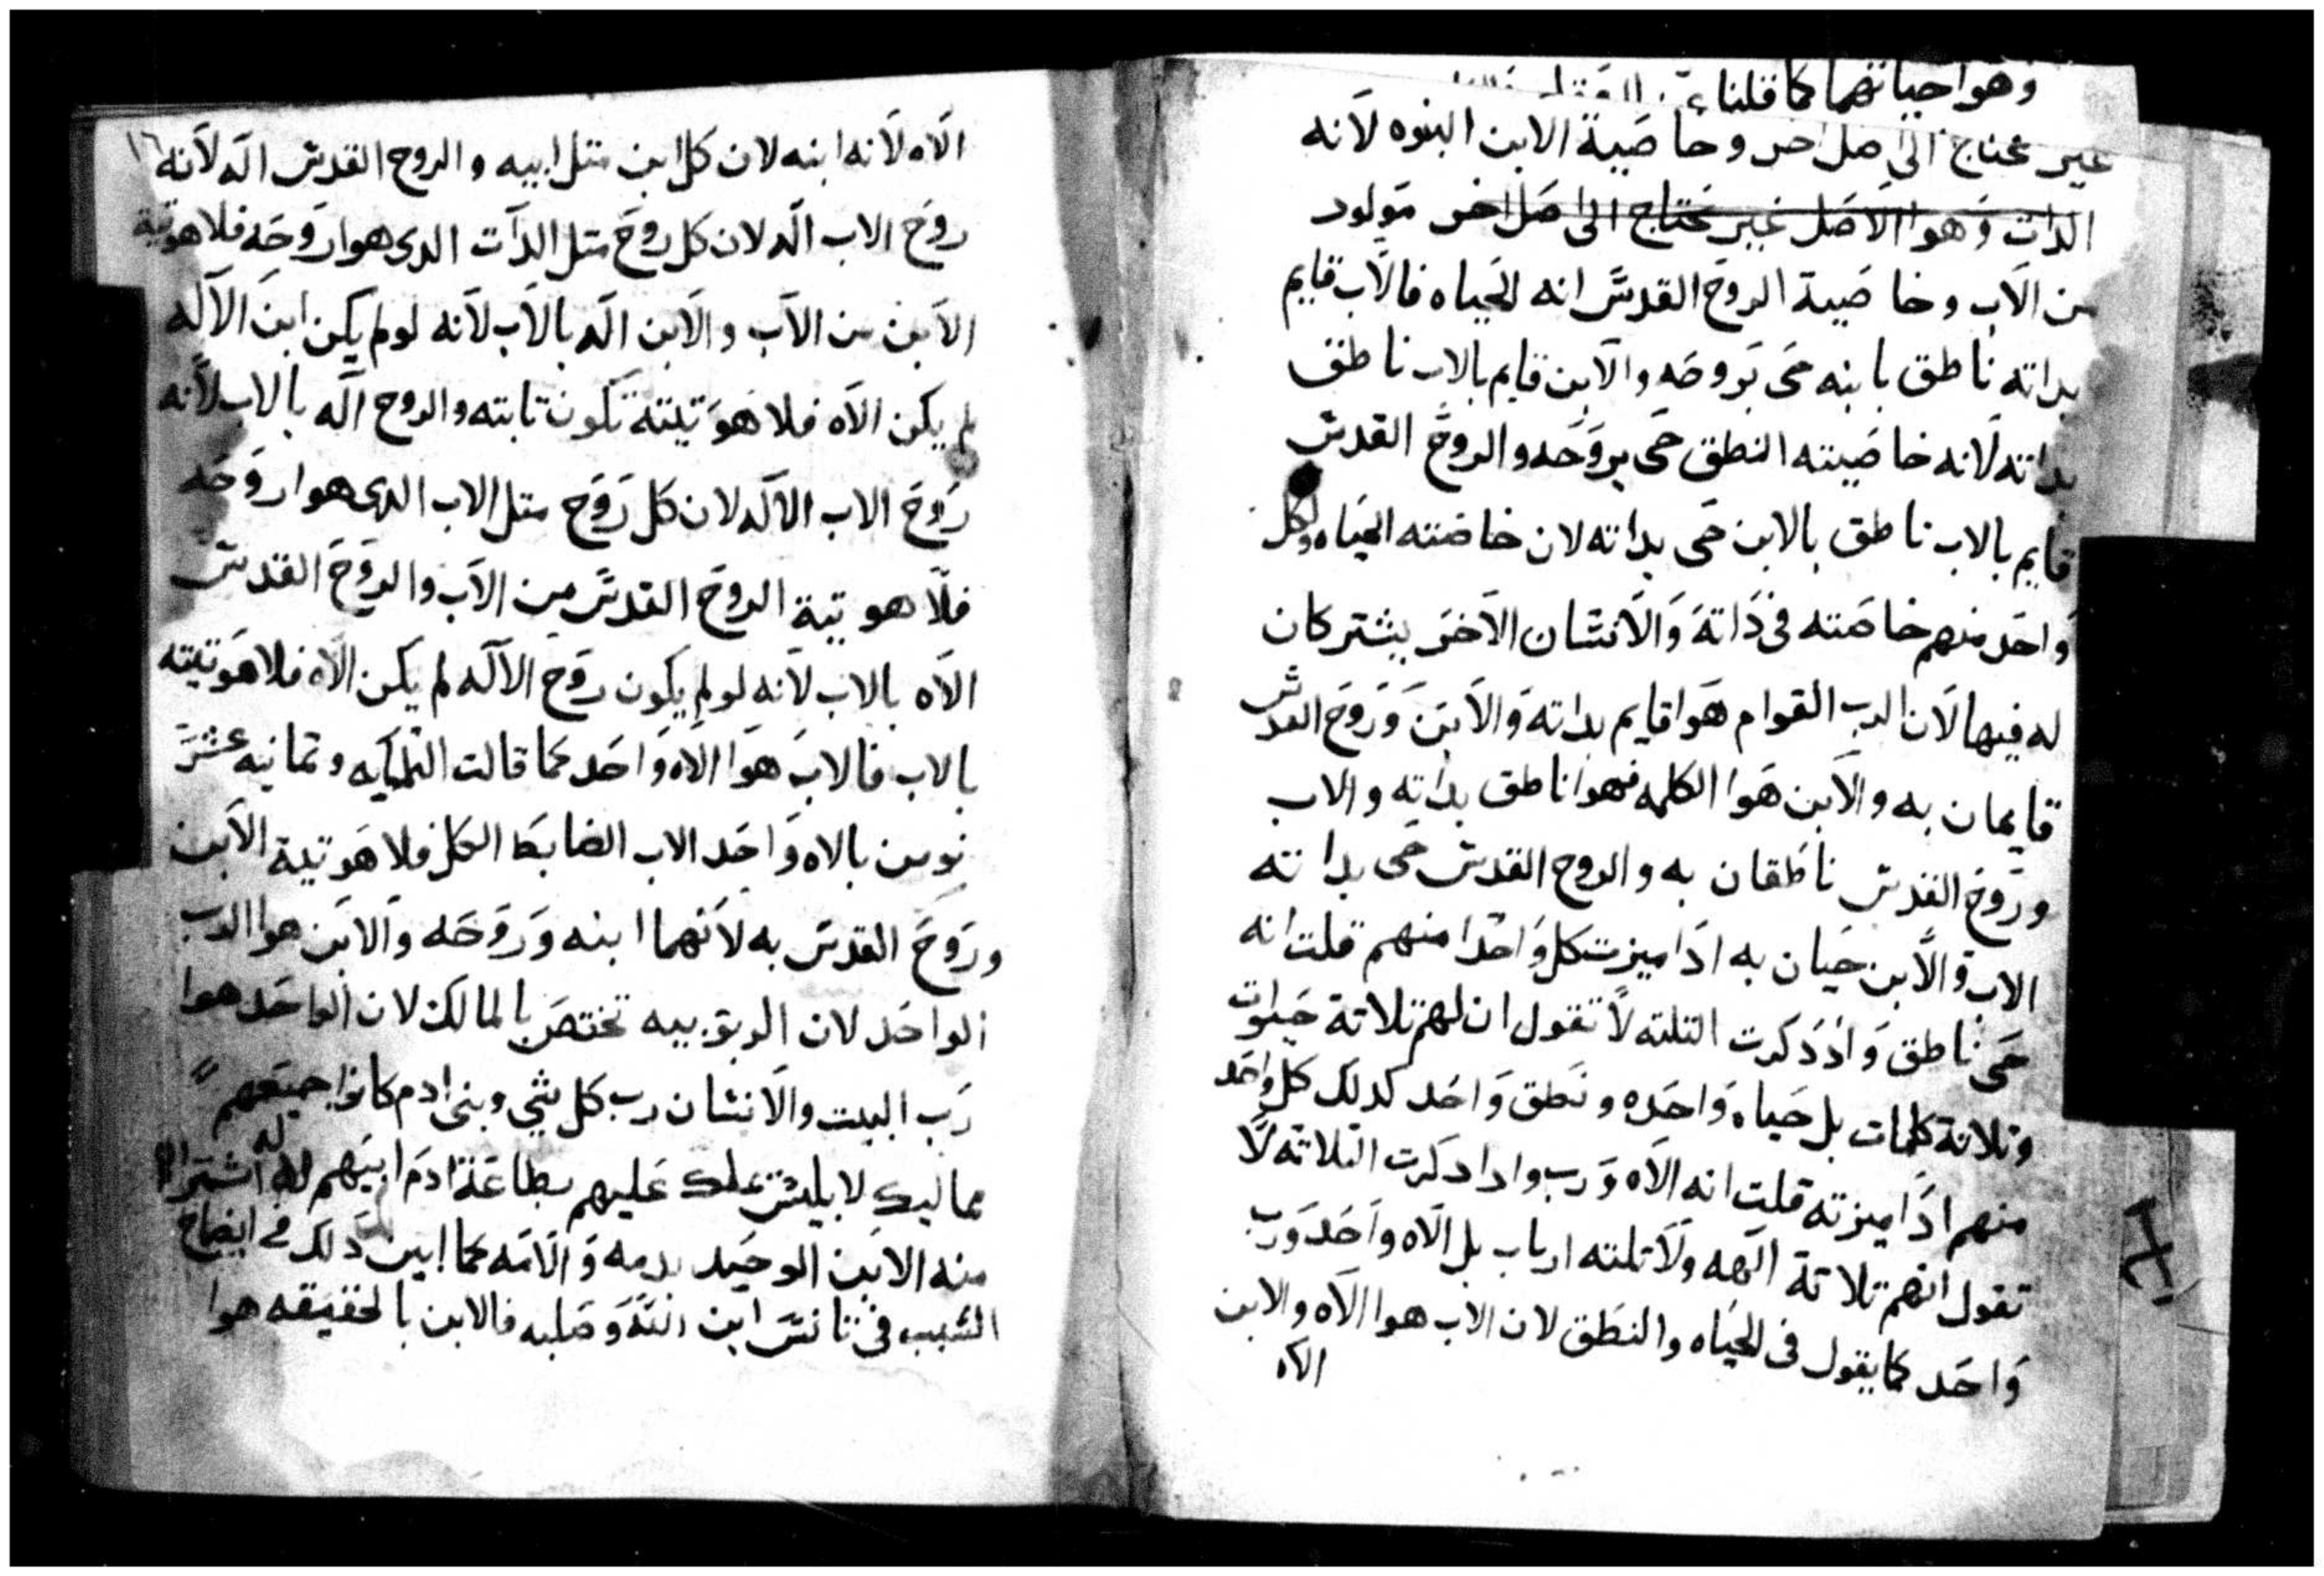 وهوا حياتهما كما قلنا
غير محتاج الى اصل اخر وخاصية الابن البنوه لانه
الدات وهوا الاصل غير محتاج الى اصل اخر مولود
من الاب وخاصية الروح القدس انه الحياه فالاب قايم
بداته ناطق بابنه حى بروحه والابن قايم بالاب ناطق
بداته لانه خاصيته النطق حى بروحه والروح القدس
قايم بالاب ناطق بالابن حى بداته لان خاصته الحياه ولكل
واحد منهم خاصته فى داته والانسان الاخر يشتركان
له فيها لان الاب القوام هوا قايم بداته والابن وروح القدس
قايمان به والابن هوا الكلمه فهوا ناطق بداته والاب
وروح القدس ناطقان به والروح القدس حى بداته
الاب والابن حيان به ادا ميزت كل واحدا منهم قلت انه
حى ناطق وادا دكرت التلته لا تقول ان لهم تلاتة حيوات
وتلاتة كلمات بل حياه واحده ونطق واحد كدلك كل واحد
منهم ادا ميزته قلت انه الاه ورب وادا دكرت التلاته لا
تقول انهم تلاتة الهه ولا تلته ارباب بل الاه واحد ورب
واحد كما يقول فى الحياه والنطق لان الاب هوا الاه والابن
الاه
١٦
الاه لانه ابنه لان كل ابن متل ابيه والروح القدس اله لانه
روح الاب اله لان كل روح متل الدات الدى هوا روحه فلاهوتية
الابن من الاب والابن اله بالاب لانه لو لم يكن ابن الاله
لم يكن الاه فلاهوتيته تكون تابته والروح اله بالاب لانه
روح الاب الاله لان كل روح متل الاب الدى هوا روحه
فلاهوتية الروح القدس من الاب والروح القدس
الاه بالاب لانه لو لم يكون روح الاله لم يكن الاه فلاهوتيته
بالاب فالاب هوا الاه واحد كما قالت التلتمايه وتمانيه عشر
نومن بالاه واحد الاب الضابط الكل فلاهوتية الابن
وروح القدس به لانهما ابنه وروحه والابن هوا الرب
الواحد لان الربوبيه تختص بالمالك لان الواحد هوا
رب البيت والانسان رب كل شي وبنى ادم كانوا جميعهم
مماليك لابليس ملك عليهم بطاعة ادم ابيهم له اشتراه
منه الابن الوحيد بدمه والامه كما ابين دلك فى ايضاح
السبب فى تانس ابن الله وصلبه فالابن بالحقيقه هوا